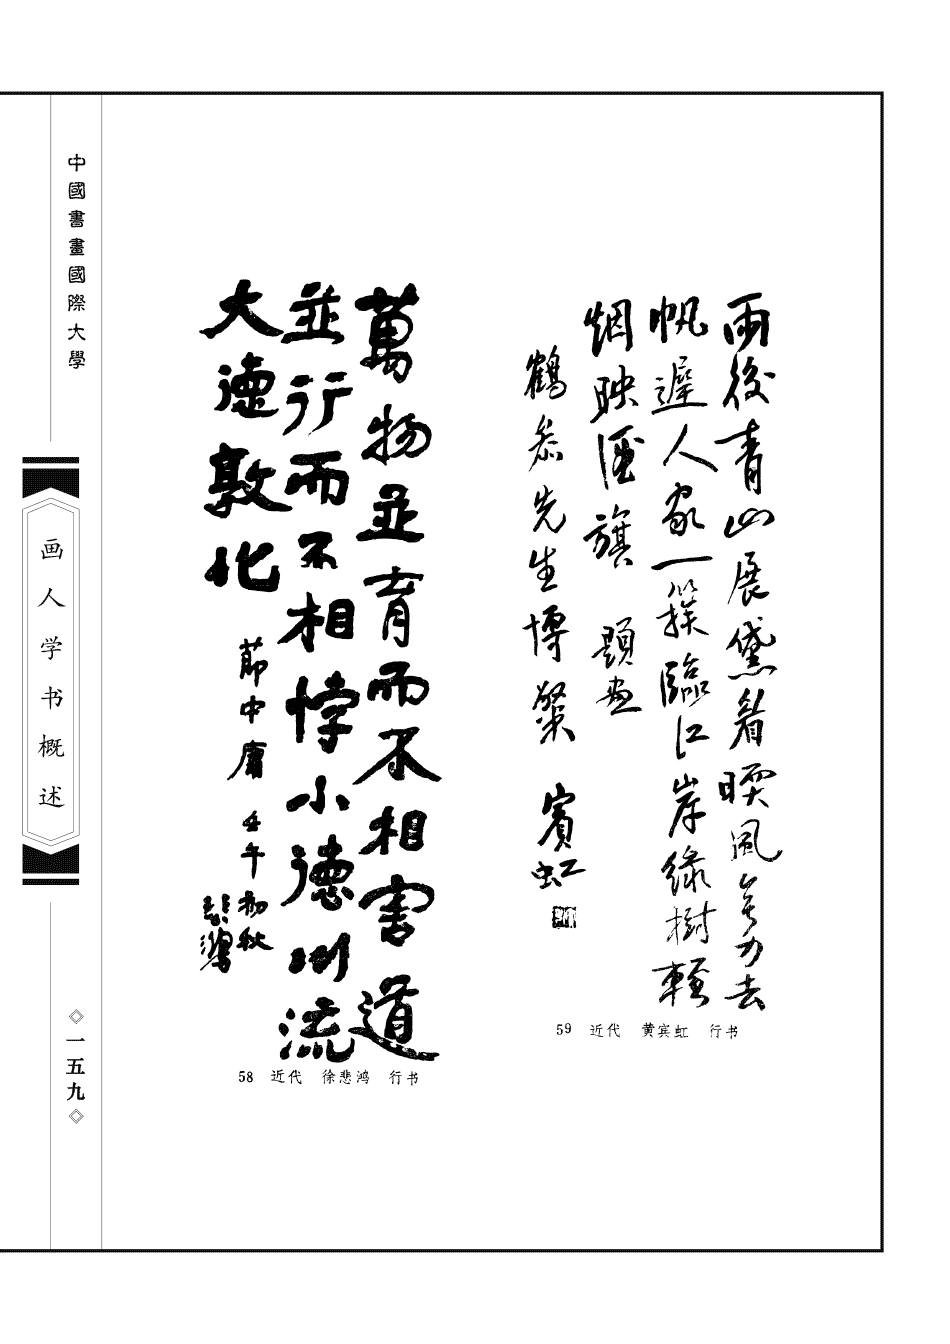 中國書畫國際大學
画人学书概述
一五九
雨後青山展黛眉暖風無力去
帆遲人家一簇臨江岸綠樹輕
烟映酒旗 題畫
鶴 先生博粲 賓虹
59 近代 黄宾虹 行书
萬物並育而不相害道
並行而不相悖小德川流
大德敦化
節中庸 壬午初秋
悲鴻
58 近代 徐悲鸿 行书